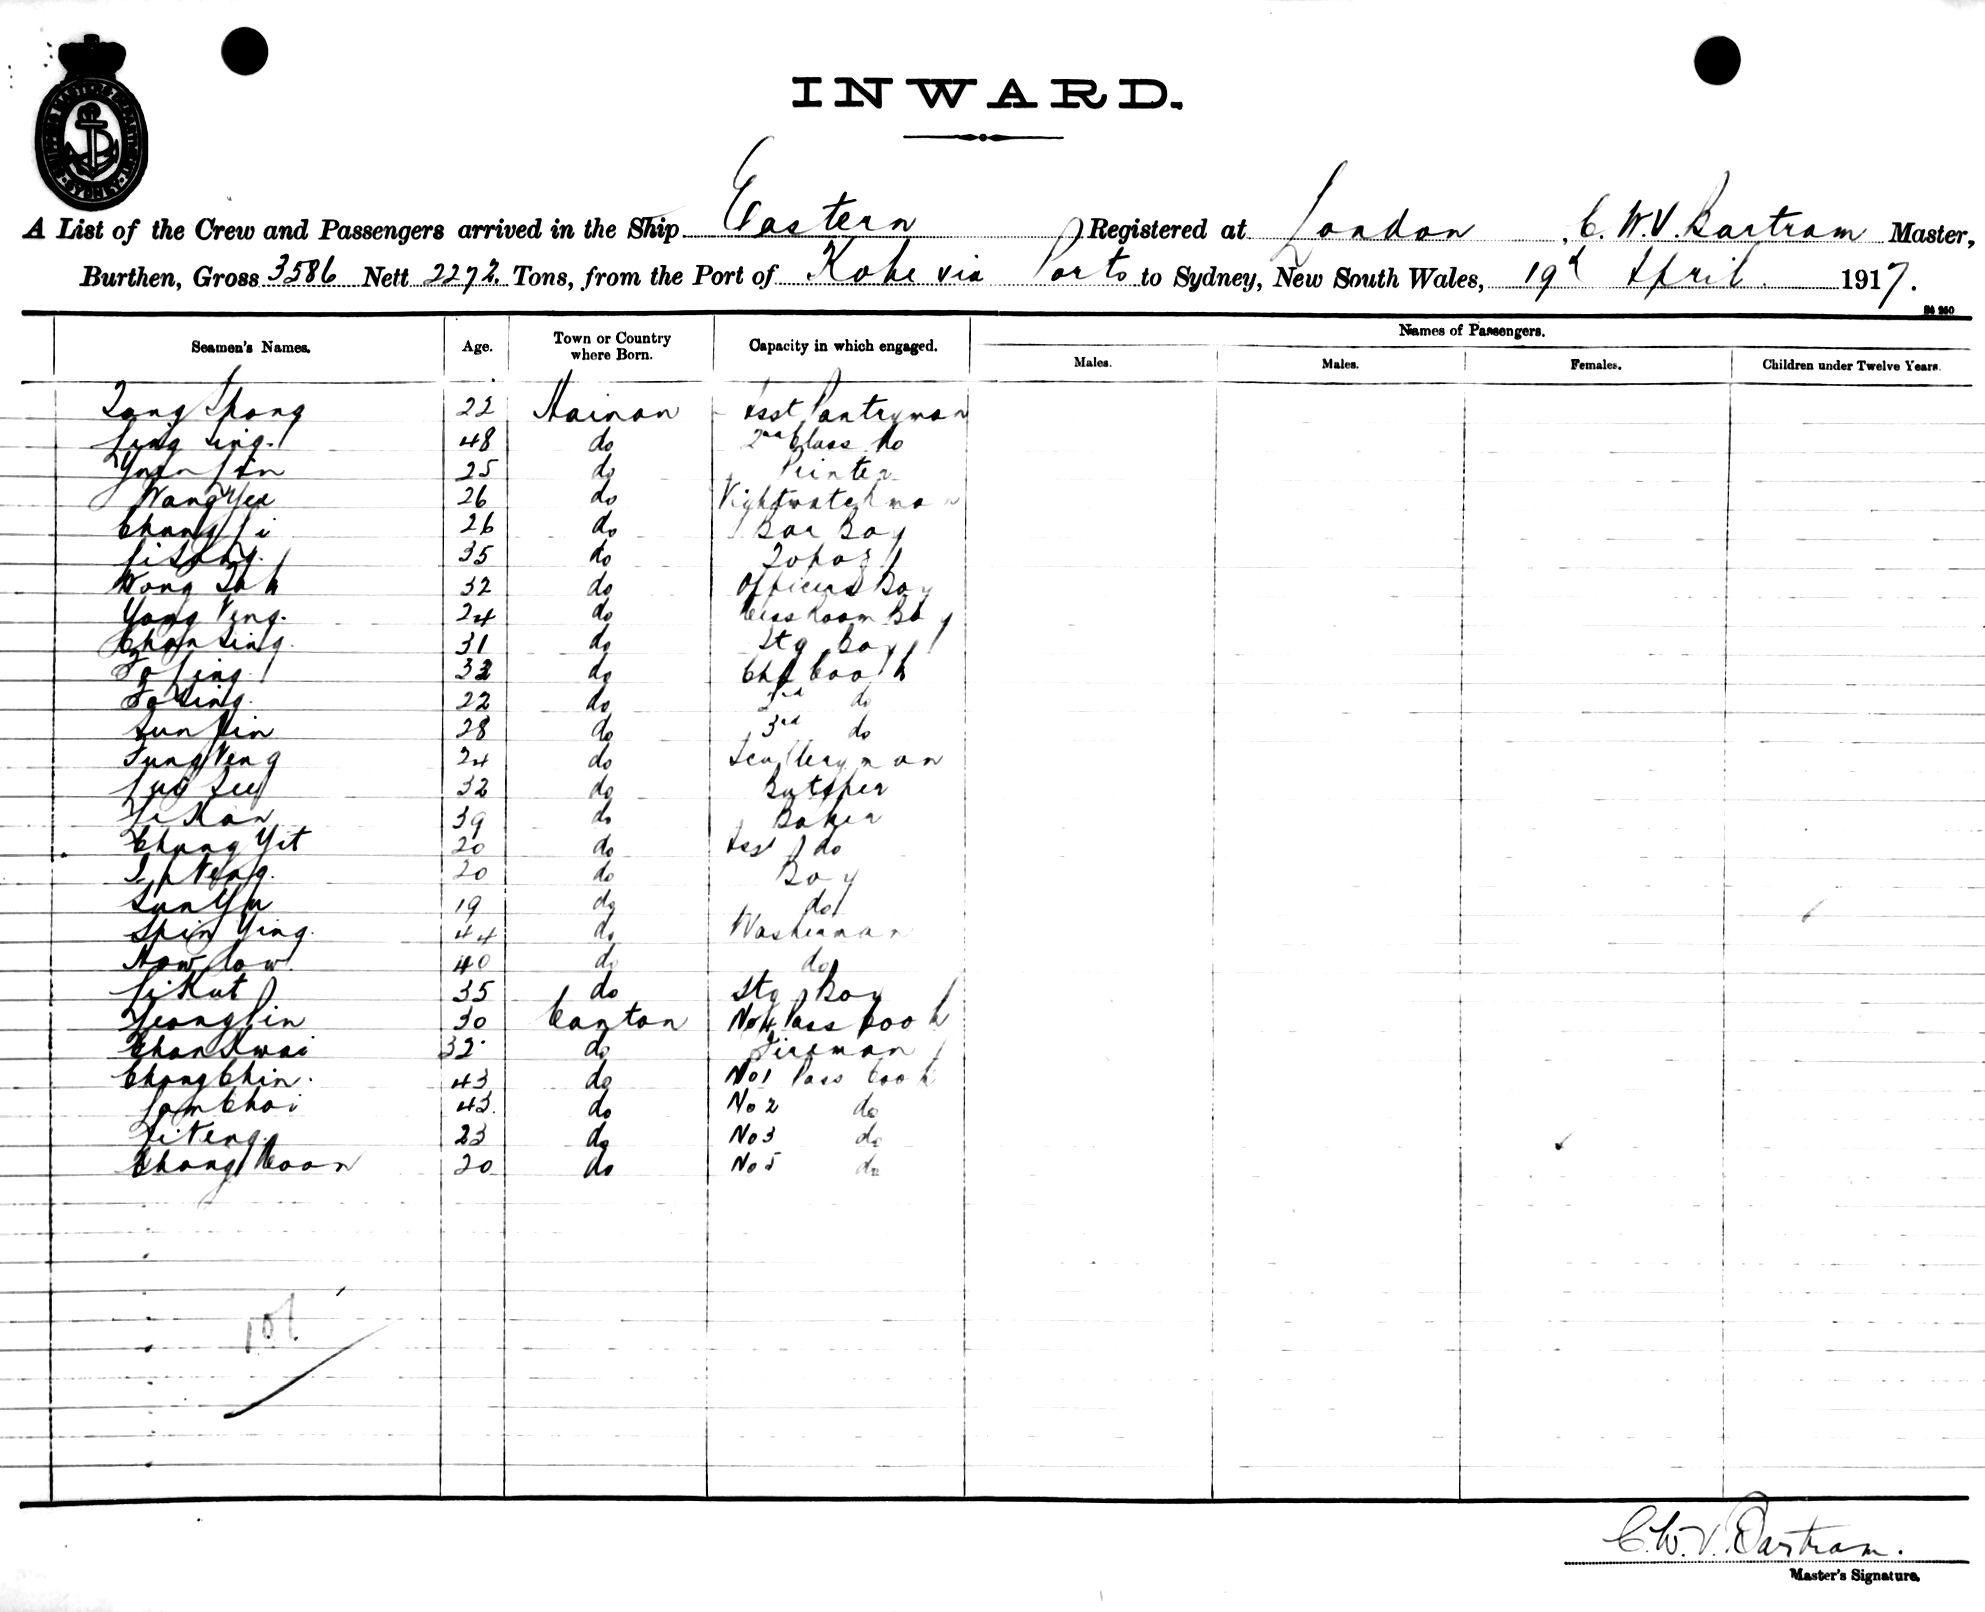 SHIPPING MASTERS DEPARTMENT SYDNEY
INWARD.
A List of the Crew and Passengers arrived in the Ship Eastern Registered at London, C. W. V. Bartram Master,
Burthen, Gross 3586 Nett 2272 Tons, from the Port of Kobe via Ports to Sydney, New South Wales, 19th April 1917.
Names of Passengers.
Seamen's Names. Age. Town or Country where Born. Capacity in which engaged. Males. Males. Females. Children under Twelve Years.
22 Hainan Asst Pantryman
Ling Sing. 48 do 2nd Class do
25 do Printer
Wang Yea 26 do Nightwatchman
Chang Li 26 do Bar Boy
Li Song. 35 do Topaz
Wong Tah 32 do Officers Boy
Yong Neng. 24 do Mess Room Boy
Chan Sing 31 do Stg Boy
Fo Ling 32 do Chf Cook
Fo Sing. 22 do 2nd do
Sun Kin 28 do 3rd do
Fung Neng 24 do Sculleryman
32 do Butcher
Li Kan 39 do Baker
Chung Yit 20 do Asst do
20 do Boy
Sun Yu 19 do do
Shin Ying. 44 do Washerman
How Dow 40 do do
Li Kut 35 do Stg Boy
Yeong Pin 30 Canton No 4 Pass Cook
Chan Kwai 32 do Fireman
Chong Chin. 43 do No 1 Pass Cook
Lam Choi 43. do No 2 do
Li Neng. 23 do No 3 do
Chong Moon 20 do No 5 do
C. W. V. Bartram.
Master's Signature.